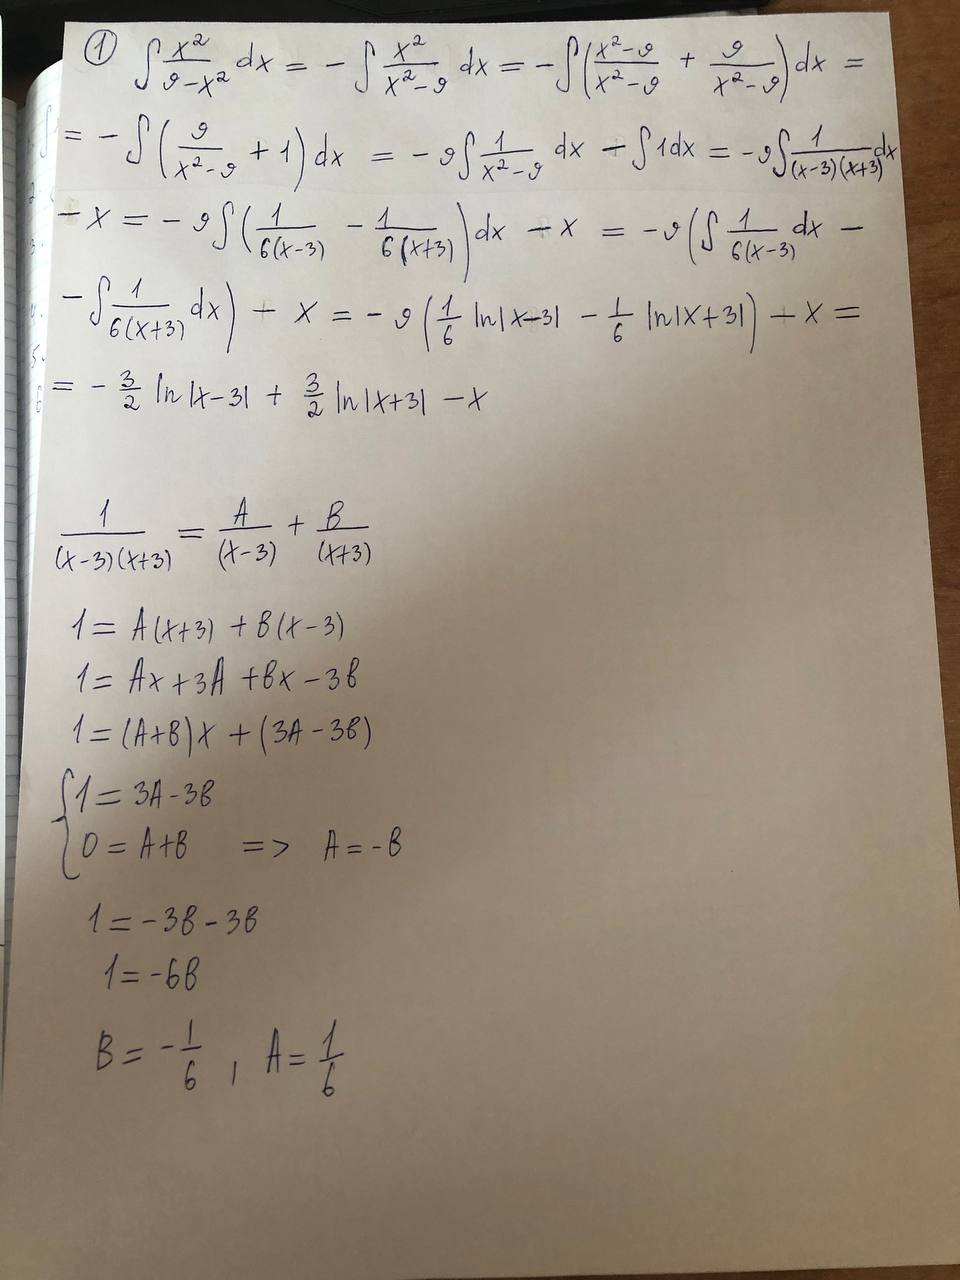 ① ∫ x²/(9-x²) dx = - ∫ x²/(x²-9) dx = - ∫ ((x²-9)/(x²-9) + 9/(x²-9)) dx =
= - ∫ (9/(x²-9) + 1) dx = -9 ∫ 1/(x²-9) dx - ∫ 1dx = -9 ∫ 1/((x-3)(x+3)) dx
- x = -9 ∫ (1/(6(x-3)) - 1/(6(x+3))) dx - x = -9 (∫ 1/(6(x-3)) dx -
- ∫ 1/(6(x+3)) dx) - x = -9 (1/6 ln|x-3| - 1/6 ln|x+3|) - x =
= - 3/2 ln|x-3| + 3/2 ln|x+3| - x
1/((x-3)(x+3)) = A/(x-3) + B/(x+3)
1 = A(x+3) + B(x-3)
1 = Ax + 3A + Bx - 3B
1 = (A+B)x + (3A - 3B)
{ 1 = 3A - 3B
0 = A+B => A = -B
1 = -3B - 3B
1 = -6B
B = -1/6 , A = 1/6